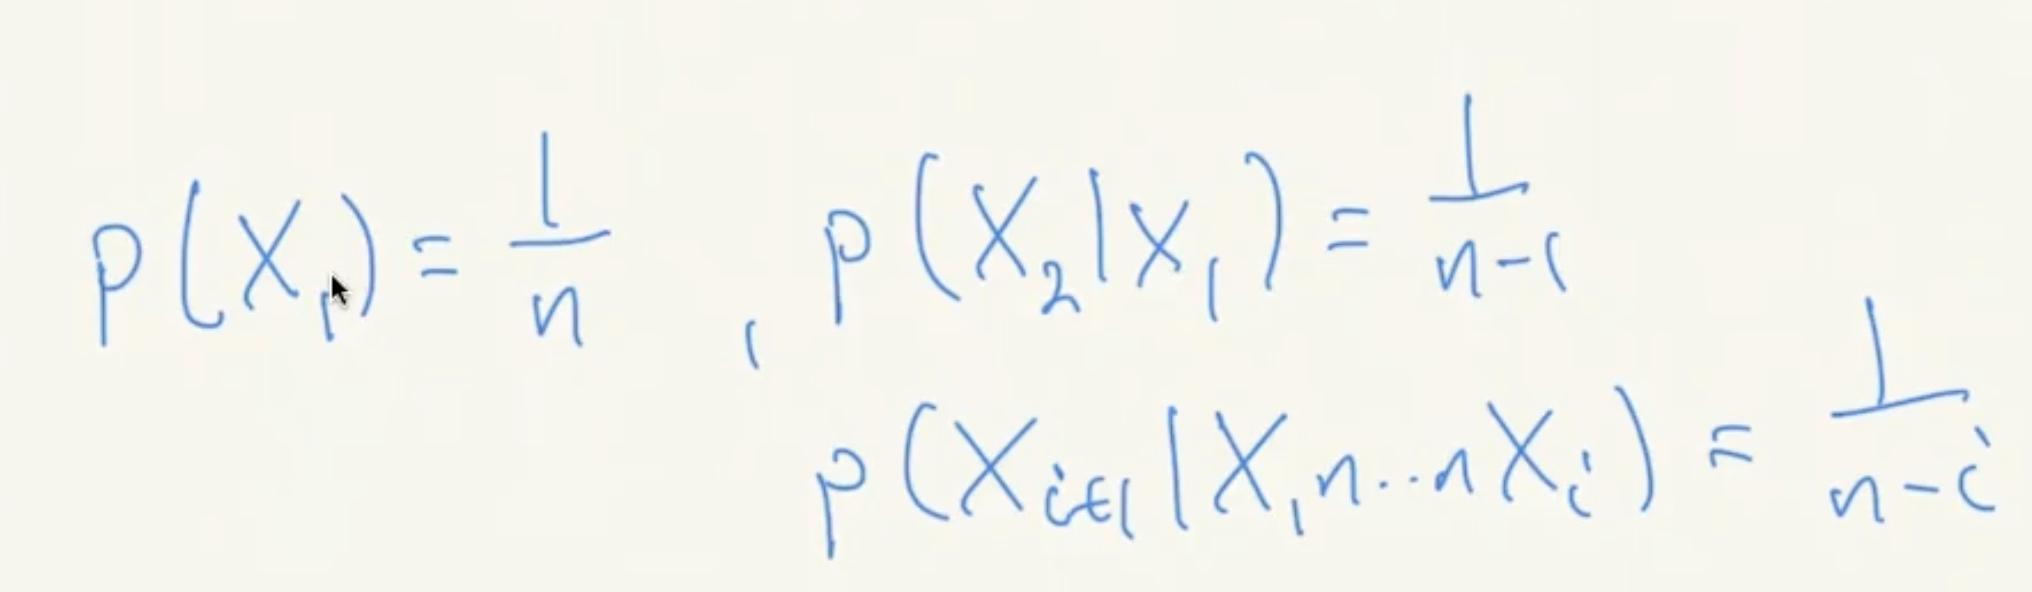 P(X₁) = 1/n , P(X₂|X₁) = 1/(n-1)
P(Xᵢ₊₁|X₁∩..∩Xᵢ) = 1/(n-i)